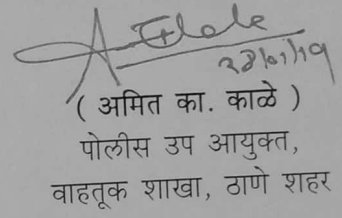 ( अमित का. काळे )
पोलीस उप आयुक्त,
वाहतूक शाखा, ठाणे शहर